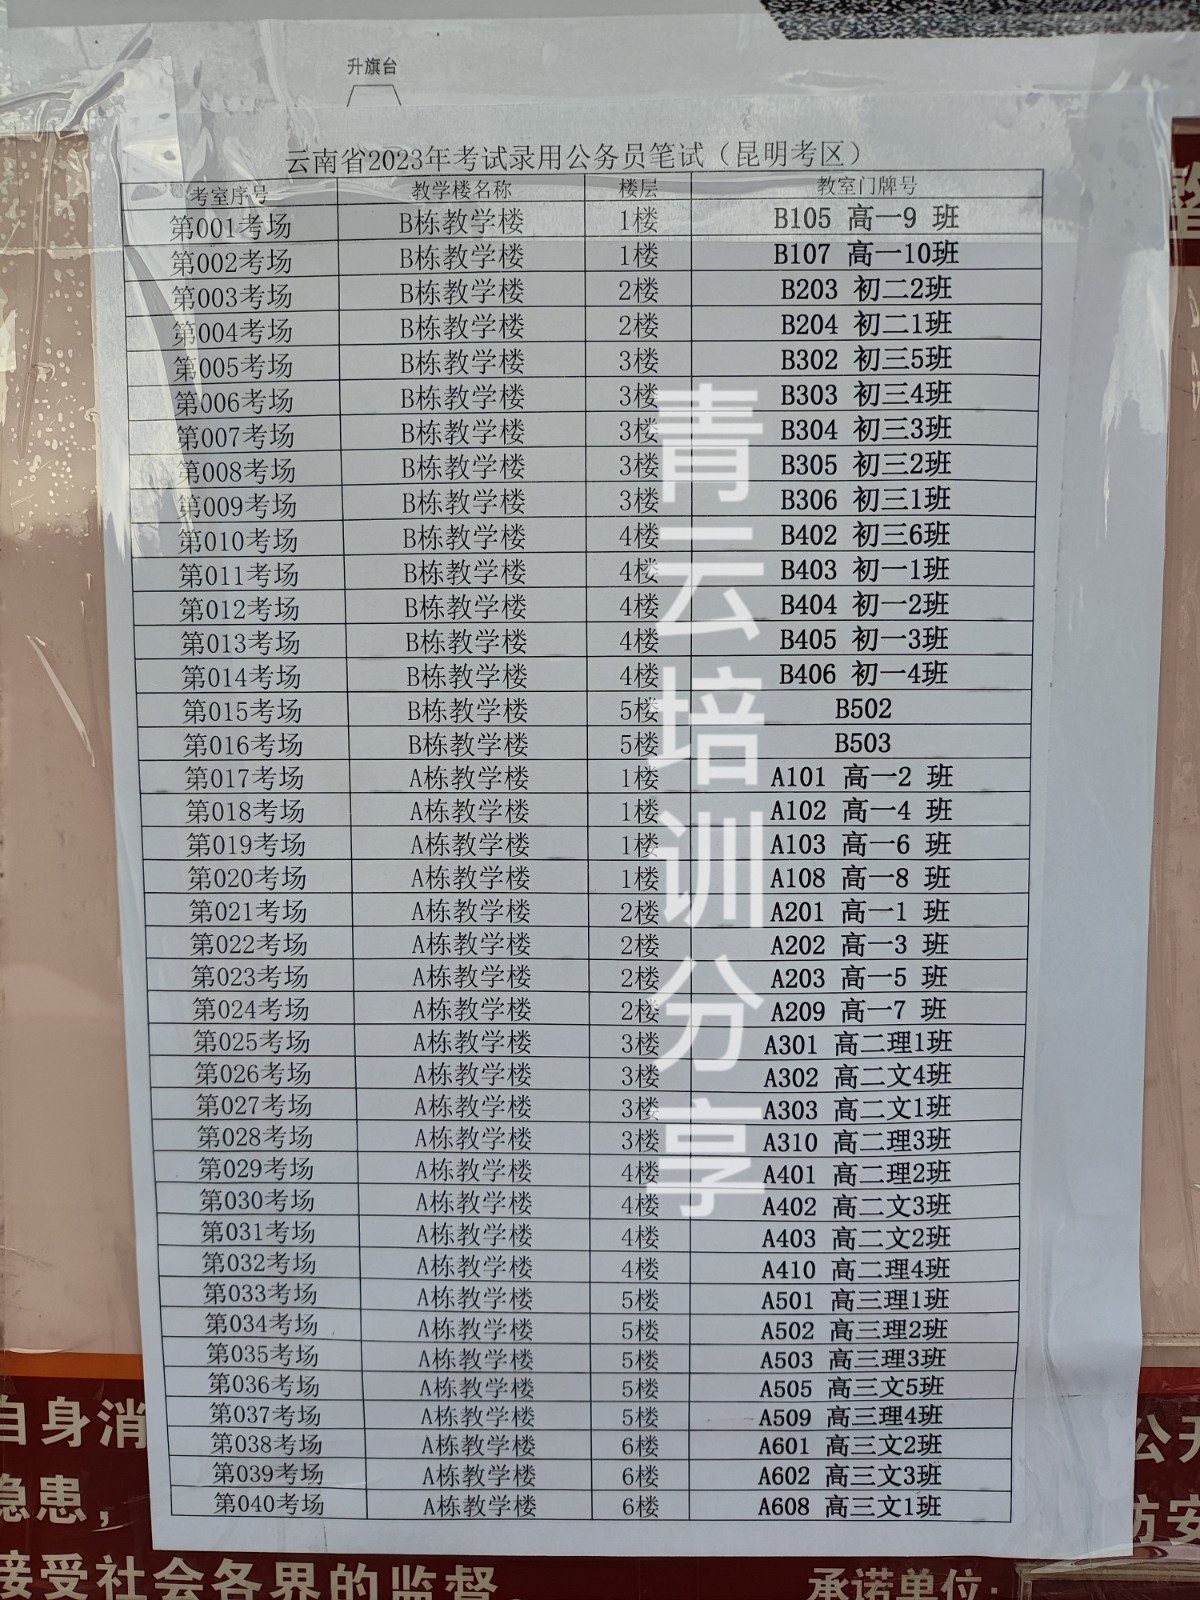 升旗台
云南省2023年考试录用公务员笔试（昆明考区）
考室序号 教学楼名称 楼层 教室门牌号
第001考场 B栋教学楼 1楼 B105 高一9 班
第002考场 B栋教学楼 1楼 B107 高一10班
第003考场 B栋教学楼 2楼 B203 初二2班
第004考场 B栋教学楼 2楼 B204 初二1班
第005考场 B栋教学楼 3楼 B302 初三5班
第006考场 B栋教学楼 3楼 B303 初三4班
第007考场 B栋教学楼 3楼 B304 初三3班
第008考场 B栋教学楼 3楼 B305 初三2班
第009考场 B栋教学楼 3楼 B306 初三1班
第010考场 B栋教学楼 4楼 B402 初三6班
第011考场 B栋教学楼 4楼 B403 初一1班
第012考场 B栋教学楼 4楼 B404 初一2班
第013考场 B栋教学楼 4楼 B405 初一3班
第014考场 B栋教学楼 4楼 B406 初一4班
第015考场 B栋教学楼 5楼 B502
第016考场 B栋教学楼 5楼 B503
第017考场 A栋教学楼 1楼 A101 高一2 班
第018考场 A栋教学楼 1楼 A102 高一4 班
第019考场 A栋教学楼 1楼 A103 高一6 班
第020考场 A栋教学楼 1楼 A108 高一8 班
第021考场 A栋教学楼 2楼 A201 高一1 班
第022考场 A栋教学楼 2楼 A202 高一3 班
第023考场 A栋教学楼 2楼 A203 高一5 班
第024考场 A栋教学楼 2楼 A209 高一7 班
第025考场 A栋教学楼 3楼 A301 高二理1班
第026考场 A栋教学楼 3楼 A302 高二文4班
第027考场 A栋教学楼 3楼 A303 高二文1班
第028考场 A栋教学楼 3楼 A310 高二理3班
第029考场 A栋教学楼 4楼 A401 高二理2班
第030考场 A栋教学楼 4楼 A402 高二文3班
第031考场 A栋教学楼 4楼 A403 高二文2班
第032考场 A栋教学楼 4楼 A410 高二理4班
第033考场 A栋教学楼 5楼 A501 高三理1班
第034考场 A栋教学楼 5楼 A502 高三理2班
第035考场 A栋教学楼 5楼 A503 高三理3班
第036考场 A栋教学楼 5楼 A505 高三文5班
第037考场 A栋教学楼 5楼 A509 高三理4班
第038考场 A栋教学楼 6楼 A601 高三文2班
第039考场 A栋教学楼 6楼 A602 高三文3班
第040考场 A栋教学楼 6楼 A608 高三文1班
青云培训分享
自身消
公开
急患，
防安
接受社会各界的监督。
承诺单位：